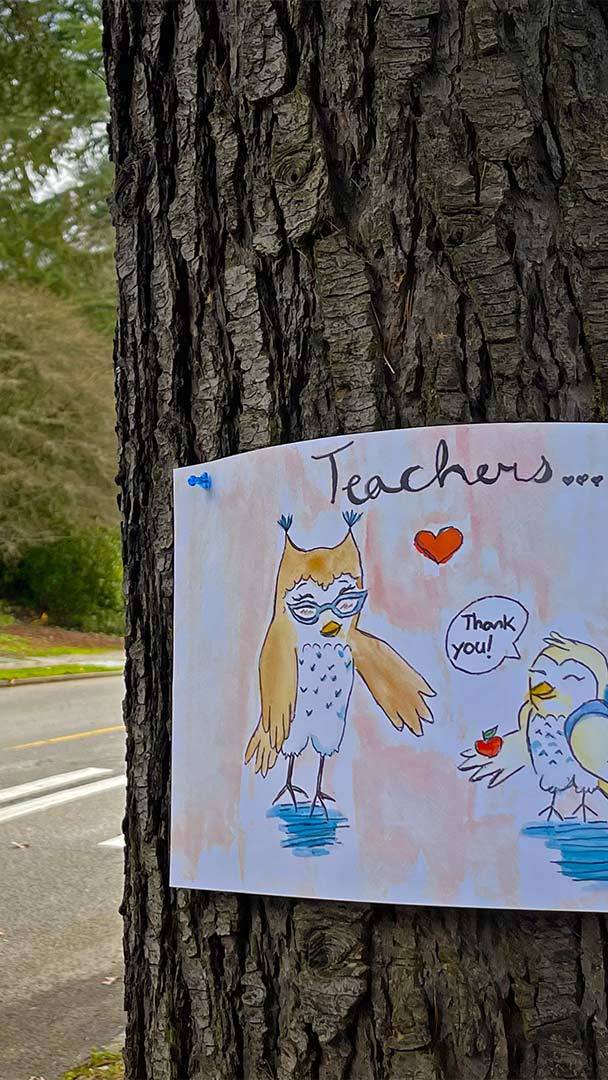 Teachers...
Thank
you!